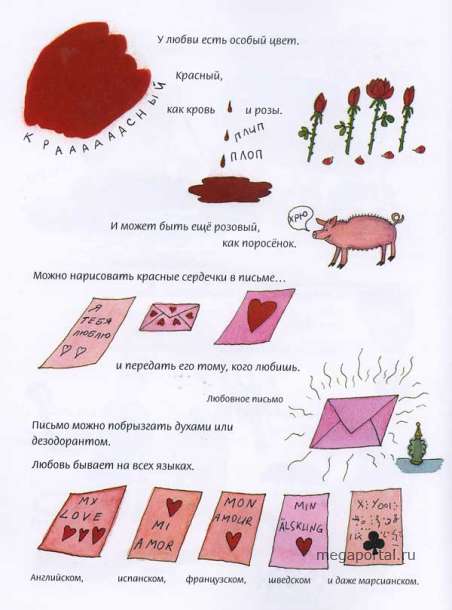 У любви есть особый цвет.
Красный,
КРААААААСНЫЙ
как кровь и розы.
ПЛИП
ПЛОП
И может быть ещё розовый,
как поросёнок.
ХРЮ
Можно нарисовать красные сердечки в письме...
Я
ТЕБЯ
ЛЮБЛЮ
и передать его тому, кого любишь.
Любовное письмо
Письмо можно побрызгать духами или
дезодорантом.
Любовь бывает на всех языках.
MY
LOVE
MI
AMOR
MON
AMOUR
MIN
ÄLSKLING
megaportal.ru
Английском, испанском, французском, шведском и даже марсианском.